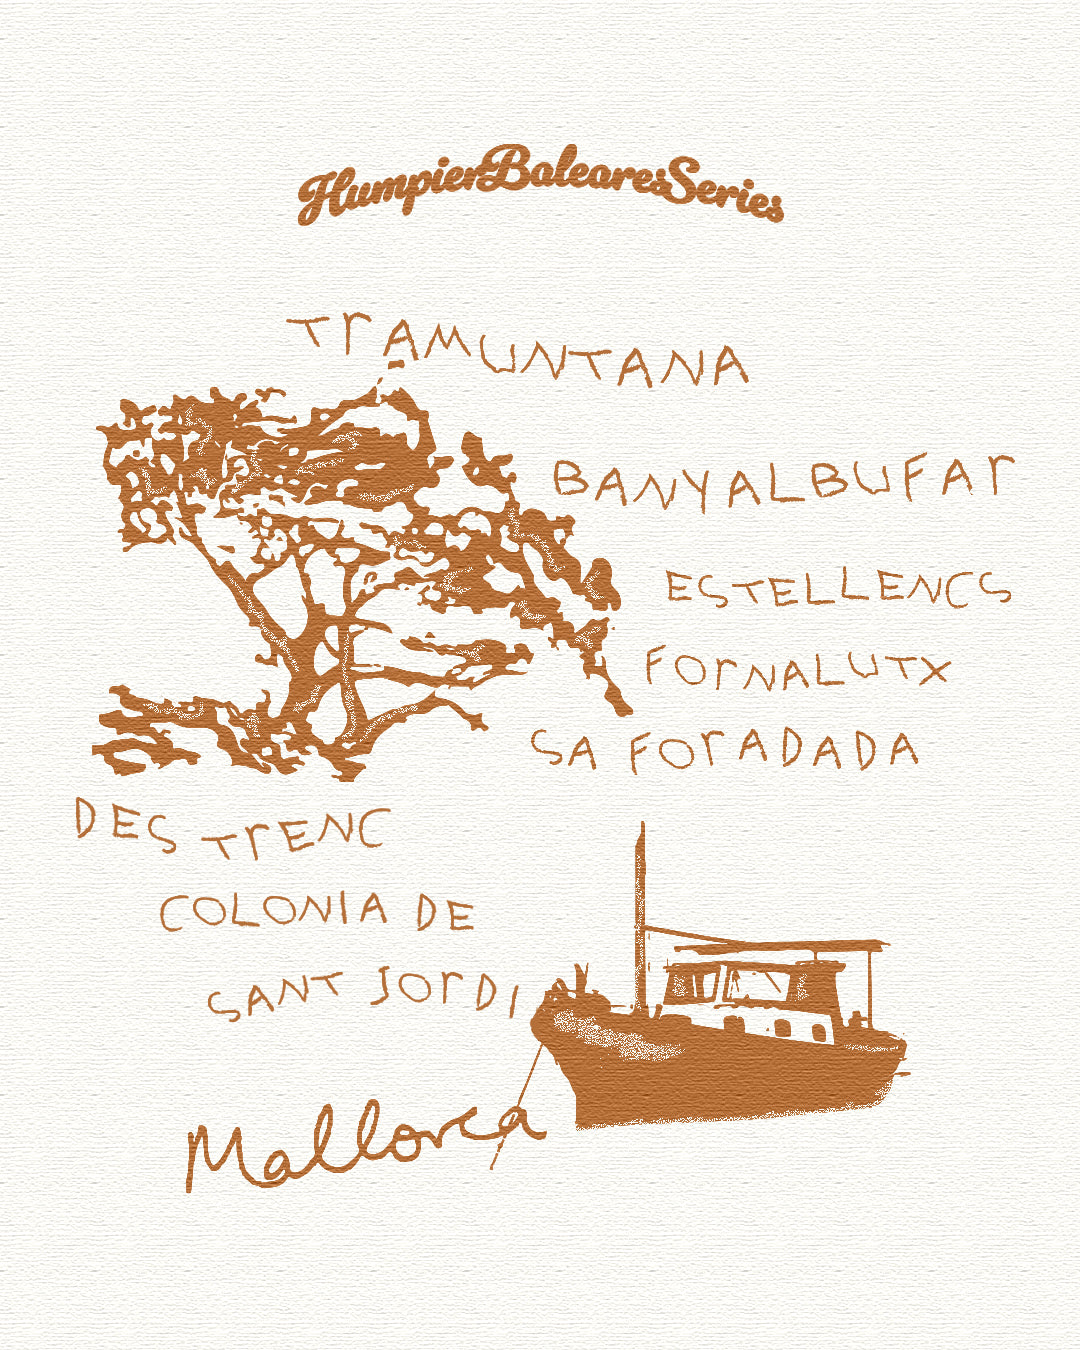 Humpier Baleares Series
TrAMUNTANA
BANYALBUFAr
ESTELLENCS
FOrNALUTX
SA FOrADADA
DES TrENC
COLONIA DE
SANT JOrDI
Mallorca